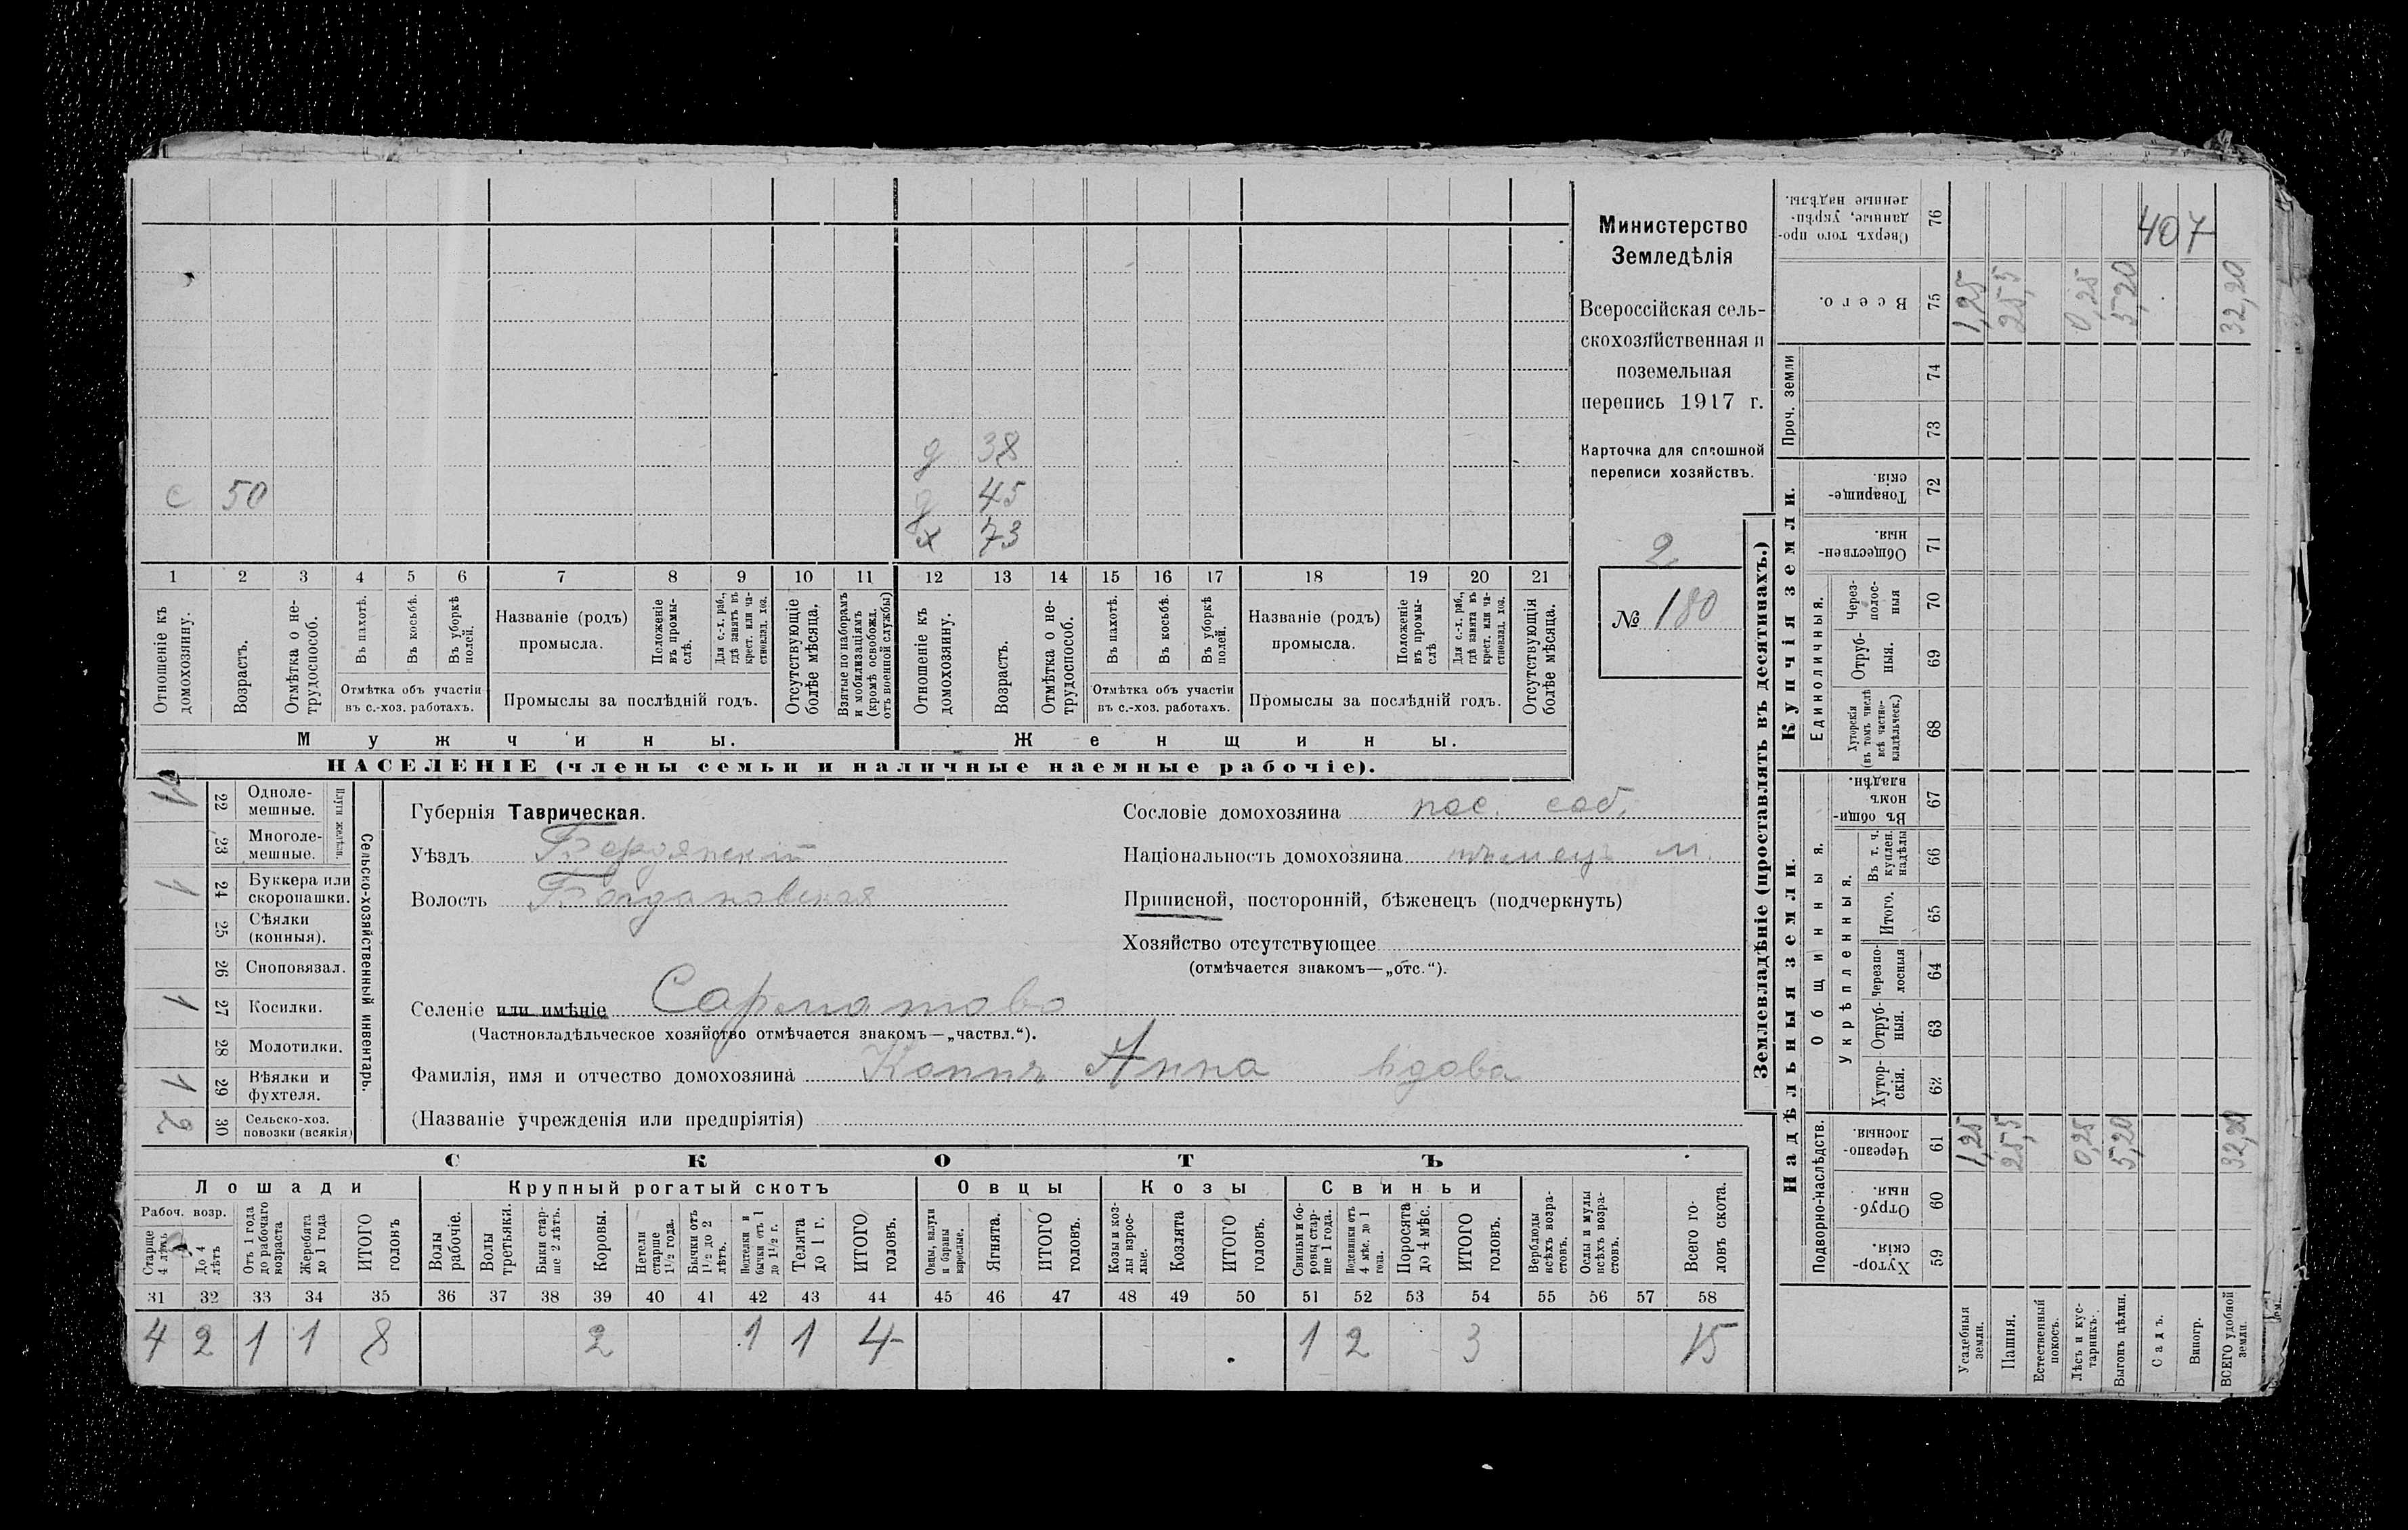 Министерство
Земледѣлія
Всероссійская сель-
скохозяйственная и
поземельная
перепись 1917 г.
Карточка для сплошной
переписи хозяйствъ.
2
№ 180
д 38
с 50
д 45
х 73
1 2 3 4 5 6 7 8 9 10 11 12 13 14 15 16 17 18 19 20 21
Отношеніе къ домохозяину.
Возрастъ.
Отмѣтка о не-трудоспособ.
Въ пахотѣ.
Въ косьбѣ.
Въ уборкѣ полей.
Отмѣтка объ участіи
въ с.-хоз. работахъ.
Названіе (родъ)
промысла.
Положеніе въ промы-слѣ.
Для с.-х. раб., гдѣ занятъ въ крест. или ча-стновлад. хоз.
Промыслы за послѣдній годъ.
Отсутствующіе болѣе мѣсяца.
Взятые по наборамъ и мобилизаціямъ (кромѣ освобожд. отъ военной службы)
Отношеніе къ домохозяину.
Возрастъ.
Отмѣтка о не-трудоспособ.
Въ пахотѣ.
Въ косьбѣ.
Въ уборкѣ полей.
Отмѣтка объ участіи
въ с.-хоз. работахъ.
Названіе (родъ)
промысла.
Положеніе въ промы-слѣ
Для с.-х. раб., гдѣ занята въ крест. или ча-стновлад. хоз.
Промыслы за послѣдній годъ.
Отсутствующія болѣе мѣсяца.
Мужчины.
Женщины.
НАСЕЛЕНІЕ (члены семьи и наличные наемные рабочіе).
Сельско-хозяйственный инвентарь.
Плуги желѣзн.
1 22 Одноле-мешные.
23 Многоле-мешные.
1 24 Буккера или скоропашки.
25 Сѣялки (конныя).
26 Сноповязал.
1 27 Косилки.
28 Молотилки.
1 29 Вѣялки и фухтеля.
2 30 Сельско-хоз. повозки (всякія)
Губернія Таврическая.
Уѣздъ Бердянскій
Волость Богдановская
Сословіе домохозяина пос. соб.
Національность домохозяина нѣмец м.
Приписной, посторонній, бѣженецъ (подчеркнуть)
Хозяйство отсутствующее
(отмѣчается знакомъ—„отс.“).
Селеніе или имѣніе Сарматово
(Частновладѣльческое хозяйство отмѣчается знакомъ—„частвл.“).
Фамилія, имя и отчество домохозяина Коппъ Анна вдова
(Названіе учрежденія или предпріятія)
СКОТЪ
Лошади
Крупный рогатый скотъ
Овцы
Козы
Свиньи
Рабоч. возр.
Старше 4 лѣтъ
До 4 лѣтъ
Отъ 1 года до рабочаго возраста
Жеребята до 1 года
ИТОГО головъ
Волы рабочіе.
Волы третьяки.
Быки стар-ше 2 лѣтъ.
Коровы.
Нетели старше 1½ года.
Бычки отъ 1½ до 2 лѣтъ.
Нетелки и бычки отъ 1 до 1½ г.
Телята до 1 г.
ИТОГО головъ.
Овцы, валухи и бараны взрослые.
Ягнята.
ИТОГО головъ.
Козы и коз-лы взрос-лые.
Козлята
ИТОГО головъ.
Свиньи и бо-ровы стар-ше 1 года.
Подсвинки отъ 4 мѣс. до 1 года.
Поросята до 4 мѣс.
ИТОГО головъ.
Верблюды всѣхъ возра-стовъ.
Ослы и мулы всѣхъ возра-стовъ.
Всего го-ловъ скота.
31 32 33 34 35 36 37 38 39 40 41 42 43 44 45 46 47 48 49 50 51 52 53 54 55 56 57 58
4 2 1 1 8 2 1 1 4 1 2 3 15
Землевладѣніе (проставлять въ десятинахъ.)
Надѣльныя земли.
Купчія земли.
Проч. земли
Подворно-наслѣдств.
Общинныя.
Укрѣпленныя.
Единоличныя.
Сверхъ того про-данные, укрѣп-ленные надѣлы. 76
407
Всего. 75 1,25 25,5 0,25 5,20 32,20
74
73
Товарище-скія 72
Обществен-ныя. 71
Через-полос-ныя 70
Отруб-ныя. 69
Хуторскія (въ томъ числѣ всѣ частно-владѣльческ.) 68
Въ общин-номъ владѣн. 67
Въ т. ч. куплен. надѣлы 66
Итого. 65
Черезпо-лосныя 64
Отруб-ныя. 63
Хутор-скія. 62
Черезпо-лосныя. 61 1,25 25,5 0,25 5,20 32,20
Отруб-ныя. 60
Хутор-скія. 59
Усадебныя земли.
Пашня.
Естественный покосъ.
Лѣсъ и кус-тарникъ.
Выгонъ цѣлин.
Садъ.
Виногр.
ВСЕГО удобной земли.